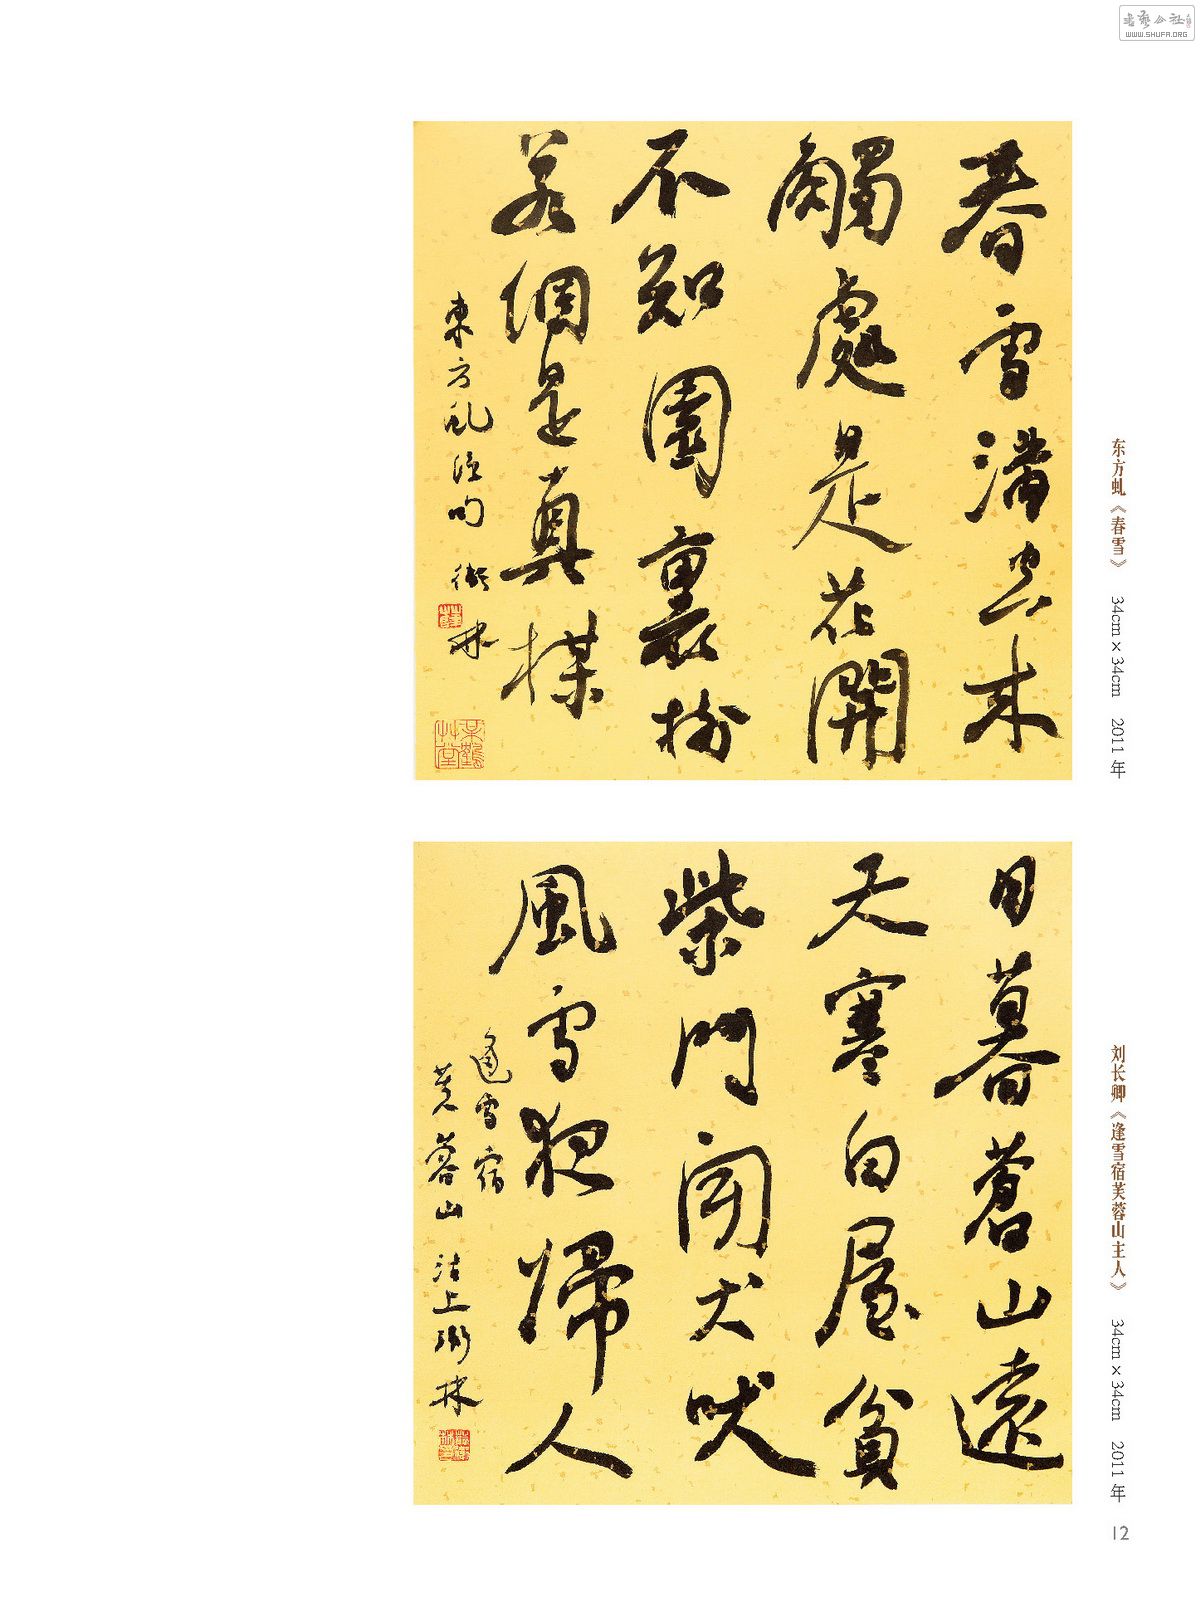 书艺公社
WWW.SHUFA.ORG
春雪滿空來
觸處是花開
不知園裏樹
若個是真楳
東方虬絕句 衛林
东方虬《春雪》 34cm×34cm 2011年
日暮蒼山遠
天寒白屋貧
柴門聞犬吠
風雪夜歸人
逢雪宿
芙蓉山 沽上衛林
刘长卿《逢雪宿芙蓉山主人》 34cm×34cm 2011年
12